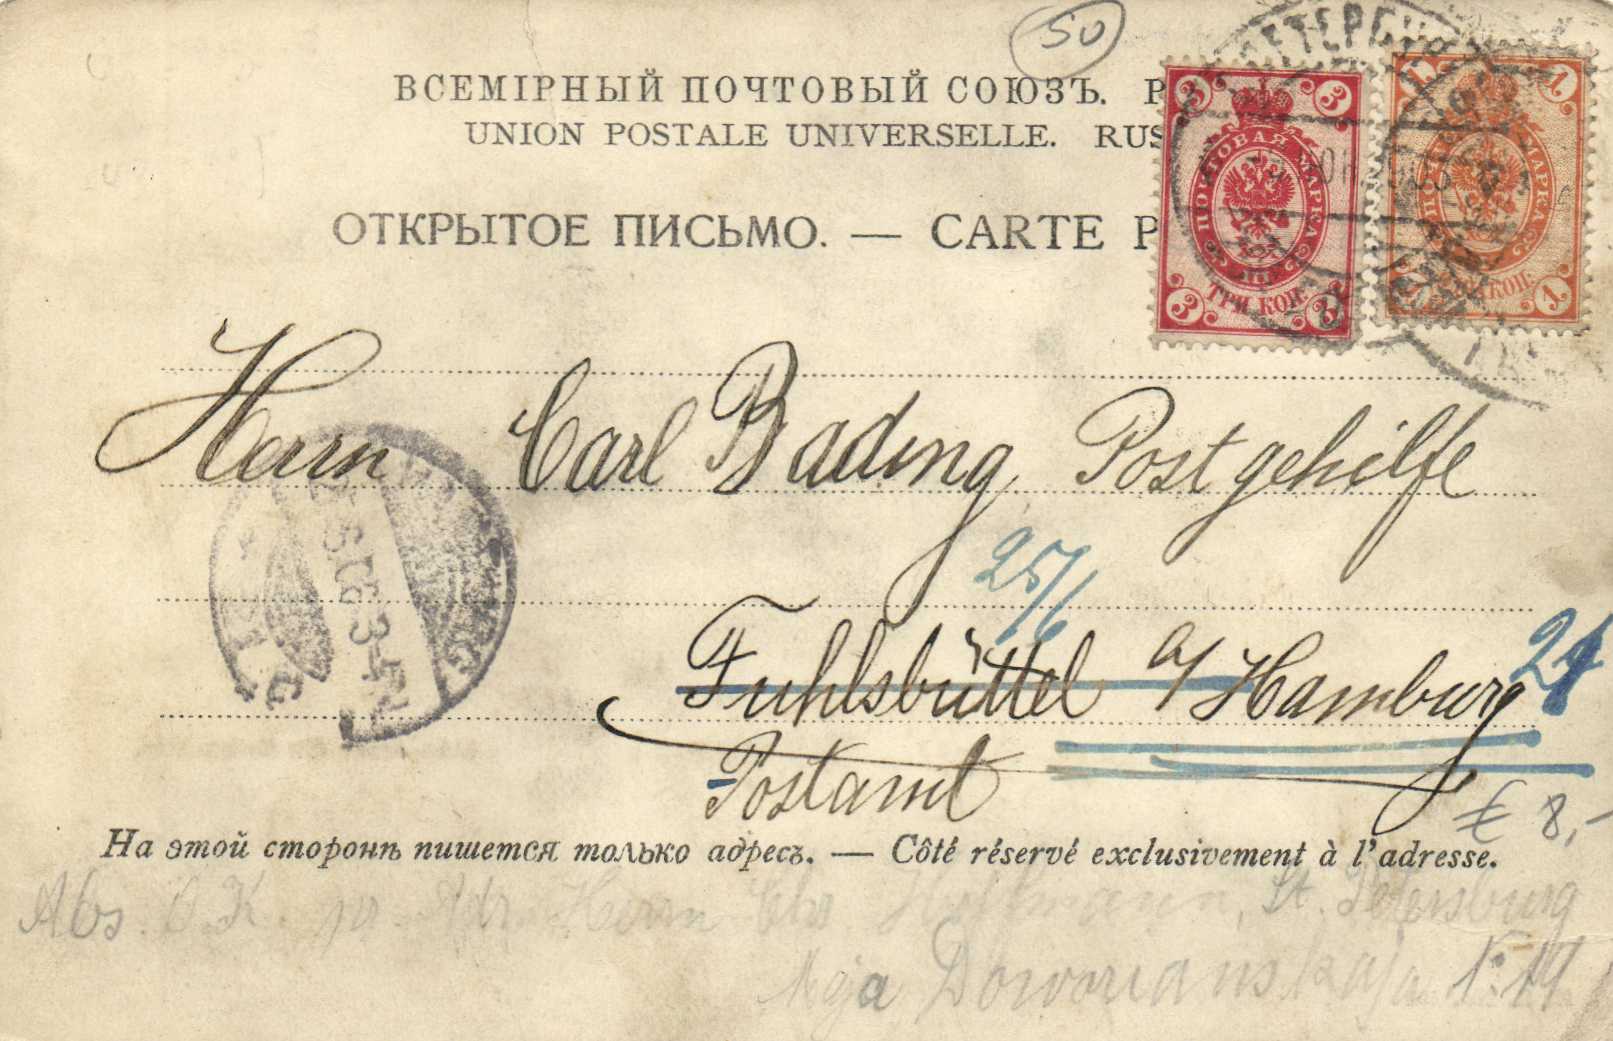 50
ВСЕМІРНЫЙ ПОЧТОВЫЙ СОЮЗЪ. Р
UNION POSTALE UNIVERSELLE. RUS
ОТКРЫТОЕ ПИСЬМО. — CARTE P
3 3
ПОЧТОВАЯ МАРКА
ТРИ КОП.
3 3
1 1
МАРКА
КОП.
1 1
Herrn Carl Bading Postgehilfe
25/6
Fuhlsbüttel a/Hamburg
Postamt
€ 8,-
На этой сторонѣ пишется только адресъ. — Côté réservé exclusivement à l'adresse.
Abs. O.K. pr. Adr. Herrn Hoffmann, St. Petersburg
No 19